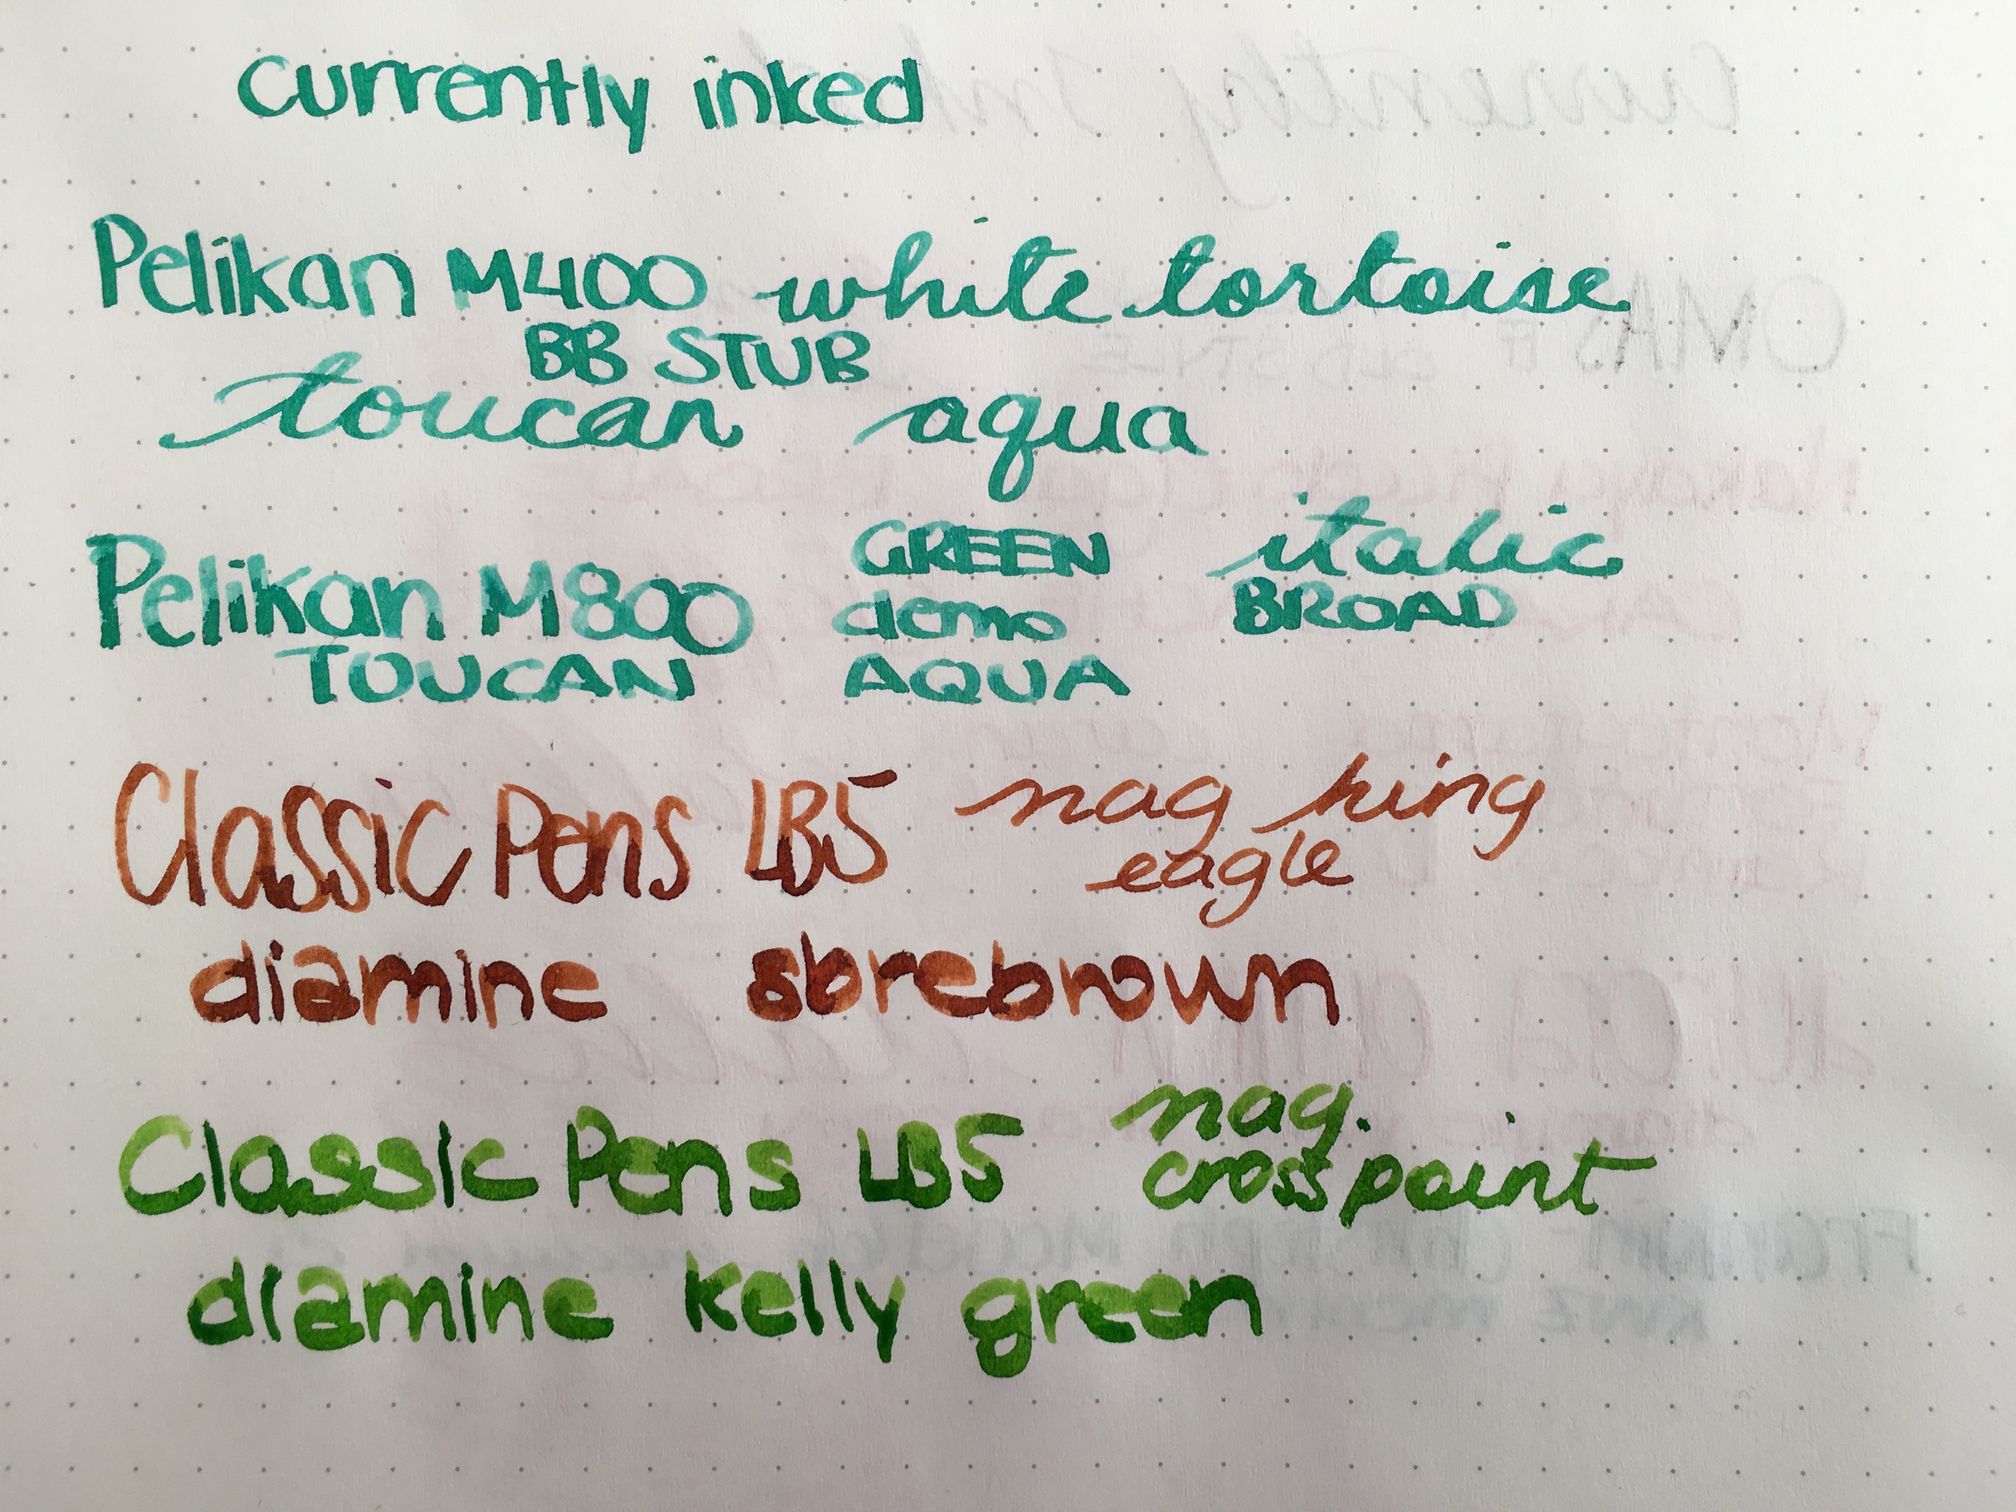 currently inked
Pelikan M400 white tortoise
BB STUB
toucan aqua
Pelikan M800 GREEN demo italic BROAD
TOUCAN AQUA
Classic Pens LB5 nag king eagle
diamine sbrebrown
Classic Pens LB5 nag. cross point
diamine kelly green